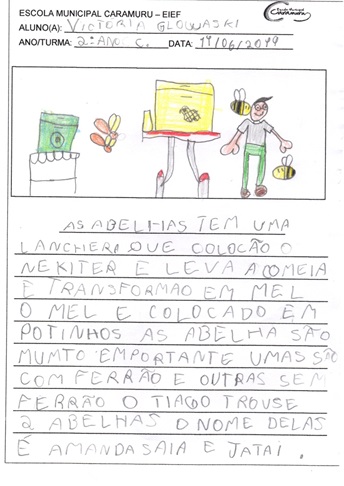 ESCOLA MUNICIPAL CARAMURU – EIEF
Escola Municipal
Caramuru
ALUNO(A): VICTORIA GLOWASKI
ANO/TURMA: 2º ANO C. DATA: 17/06/2019
AS ABELHAS TEM UMA
LANCHERA QUE COLOCÃO O
NEKITER E LEVA A COMEIA
E TRANSFORMÃO EM MEL
O MEL E COLOCADO EM
POTINHOS AS ABELHA SÃO
MUMTO EMPORTANTE UMAS SÃO
COM FERRÃO E OUTRAS SEM
FERRÃO O TIAGO TROUSE
2 ABELHAS O NOME DELAS
É AMANDASAIA E JATAI.